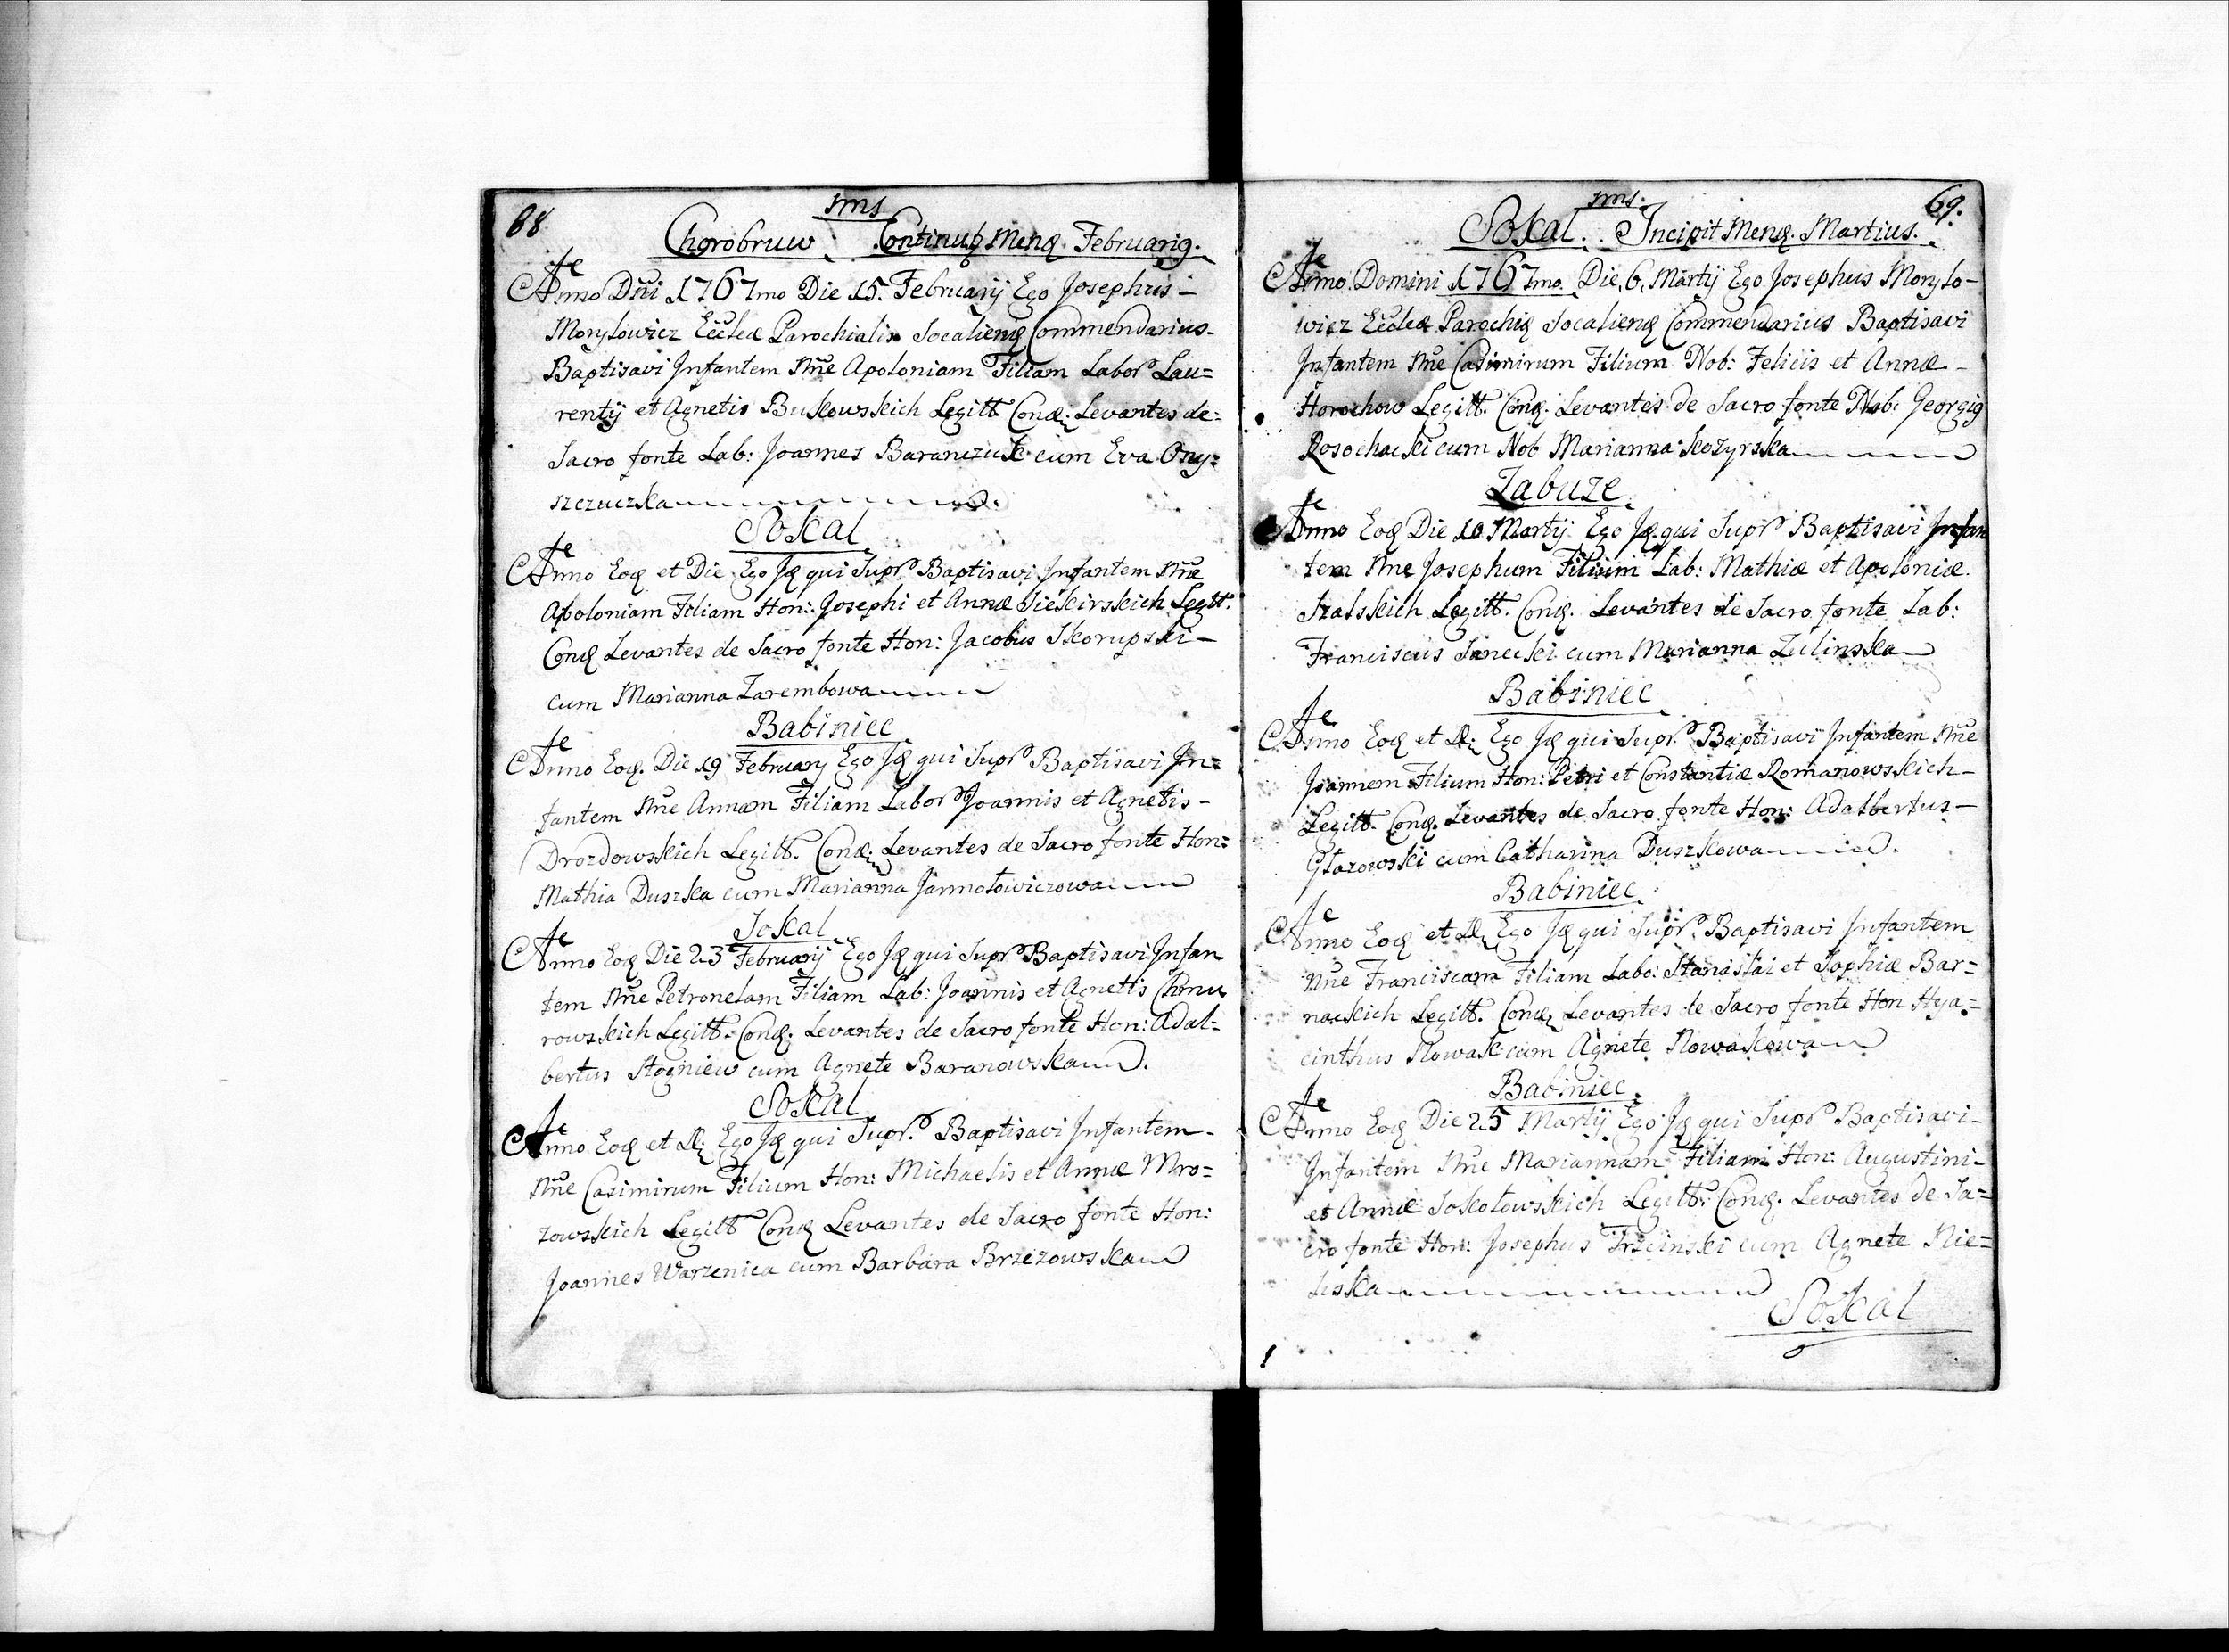 68
sms
Chorobruw. Continuꝫ Mensꝫ Februariꝫ.
Anno Dñi 1767mo Die 15. Februarij Ego Josephus –
Morylowicz Eccleæ Parochialis Socalienꝫ Commendarius –
Baptisavi Infantem Nñe Apoloniam Filiam Labor Lau=
rentij et Agnetis Bukowskich Legitt Conꝫ. Levantes de=
Sacro fonte Lab: Joannes Baranczuk cum Eva Ony=
szczuczka
Sokal
Anno Eoꝫ et Die Ego Jꝫ qui Supr Baptisavi Infantem Nñe
Apoloniam Filiam Hon: Josephi et Annæ Siekirskich Legtt.
Conꝫ Levantes de Sacro fonte Hon: Jacobus Skorupski –
cum Marianna Zarembowa
Babiniec
Anno Eoꝫ. Die 19 February Ego Jꝫ qui Supr Baptisavi In=
fantem Nñe Annam Filiam Labor Joannis et Agnetis –
Drozdowskich Legitt. Conꝫ. Levantes de Sacro fonte Hon:
Mathia Duszka cum Marianna Jarmołowiczowa
Sokal
Anno Eoꝫ Die 23 Februarij Ego Jꝫ qui Supr Baptisavi Infan
tem Nñe Petronelam Filiam Lab: Joannis et Agnetis Chmu
rowskich Legitt. Conꝫ. Levantes de Sacro fonte Hon: Adal=
bertus Stogniew cum Agnete Baranowska
Sokal
Anno Eoꝫ et D: Ego Jꝫ qui Supr. Baptisavi Infantem –
Nñe Casimirum Filium Hon: Michaelis et Annæ Mro=
zowskich Legitt Conꝫ Levantes de Sacro fonte Hon:
Joannes Warzenica cum Barbara Brzezowska
sms. 69.
Sokal. Incipit Mensꝫ. Martius.
Anno Domini 1767mo. Die, 6, Martij Ego Josephus Morylo-
wicz Eccleæ Parochiꝫ Socalienꝫ Commendarius Baptisavi
Infantem Nñe Casimirum Filium Nob: Felicis et Annæ –
Horochow Legitt. Conꝫ. Levantes de Sacro fonte Nob: Georgiꝫ
Rosochacki cum Nob Marianna Kozyrska
Zabuze
Anno Eoꝫ Die 10 Martij Ego Jꝫ qui Supr Baptisavi Infan
tem Nñe Josephum Filium Lab: Mathiæ et Apoloniæ.
Legitt. Conꝫ. Levantes de Sacro fonte Lab:
Franciscus Janecki cum Marianna Zulinska
Babiniec
Anno Eoꝫ et D: Ego Jꝫ qui Supr. Baptisavi Infantem Nñe
Joannem Filium Hon: Petri et Constantiæ Romanowskich –
Legitt. Conꝫ. Levantes de Sacro fonte Hon: Adalbertus –
Głazowski cum Catharina Duszkowa
Babiniec
Anno Eoꝫ et D: Ego Jꝫ qui Supr. Baptisavi Infantem
Nñe Franciscam Filiam Labo: Stanislai et Sophiæ Bar=
nackich Legitt. Conꝫ Levantes de Sacro fonte Hon Hya=
cinthus Nowak cum Agnete Nowakowa
Babiniec
Anno Eoꝫ Die 25 Martij Ego Jꝫ qui Supr Baptisavi –
Infantem Nñe Mariannam Filiam Hon: Augustini –
et Annæ Sokołowskich Legitt. Conꝫ. Levantes de Sa=
cro fonte Hon: Josephus Trzcinski cum Agnete Nie=
Sokal